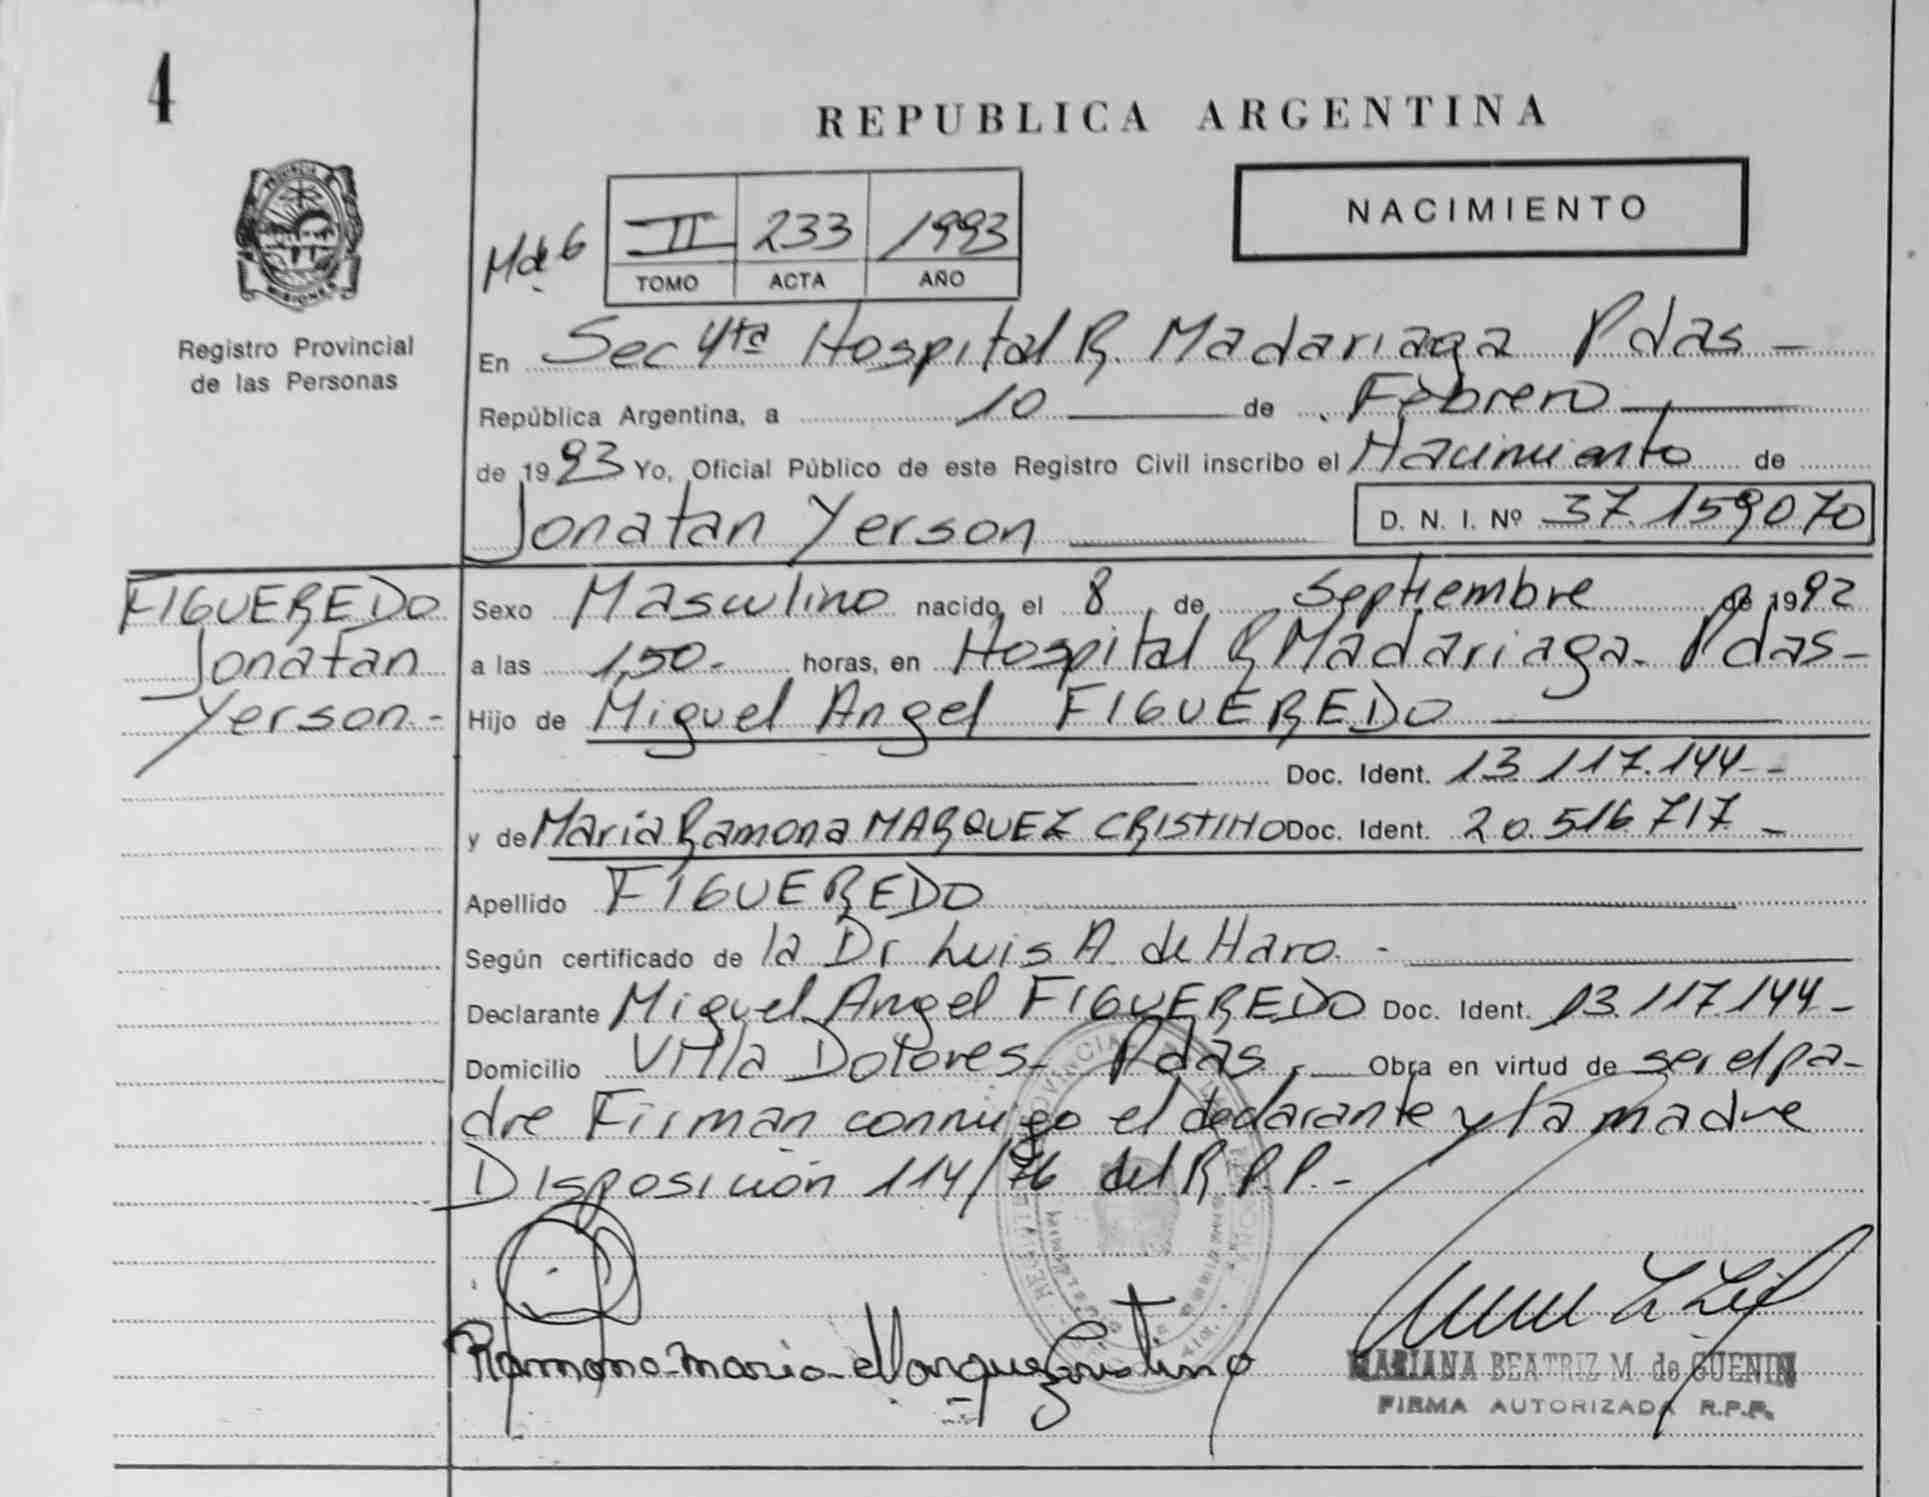 4
REPUBLICA ARGENTINA
PROVINCIA DE
MISIONES
Registro Provincial
de las Personas
NACIMIENTO
II 233 1993
TOMO ACTA AÑO
En Sec 4ta Hospital R. Madariaga Pdas -
República Argentina, a 10 de Febrero
de 1993 Yo, Oficial Público de este Registro Civil inscribo el Nacimiento de
Jonatan Yerson D. N. I. Nº 37.159070
FIGUEREDO
Jonatan
Yerson.-
Sexo Masculino nacido el 8 de Septiembre de 1992
a las 1,50.- horas, en Hospital R Madariaga- Pdas-
Hijo de Miguel Angel FIGUEREDO
Doc. Ident. 13.117.144--
y de María Ramona MARQUEZ CRISTINO Doc. Ident. 20.516717-
Apellido FIGUEREDO
Según certificado de la Dr Luis A. de Haro.-
Declarante Miguel Angel FIGUEREDO Doc. Ident. 13.117.144-
Domicilio Villa Dolores- Pdas.- Obra en virtud de ser el pa-
dre Firman conmigo el declarante y la madre
Disposición 114/76 del R.P.P.-
Ramona-maria-Marquez Cristino
MARIANA BEATRIZ M. de GUENIN
FIRMA AUTORIZADA R.P.P.